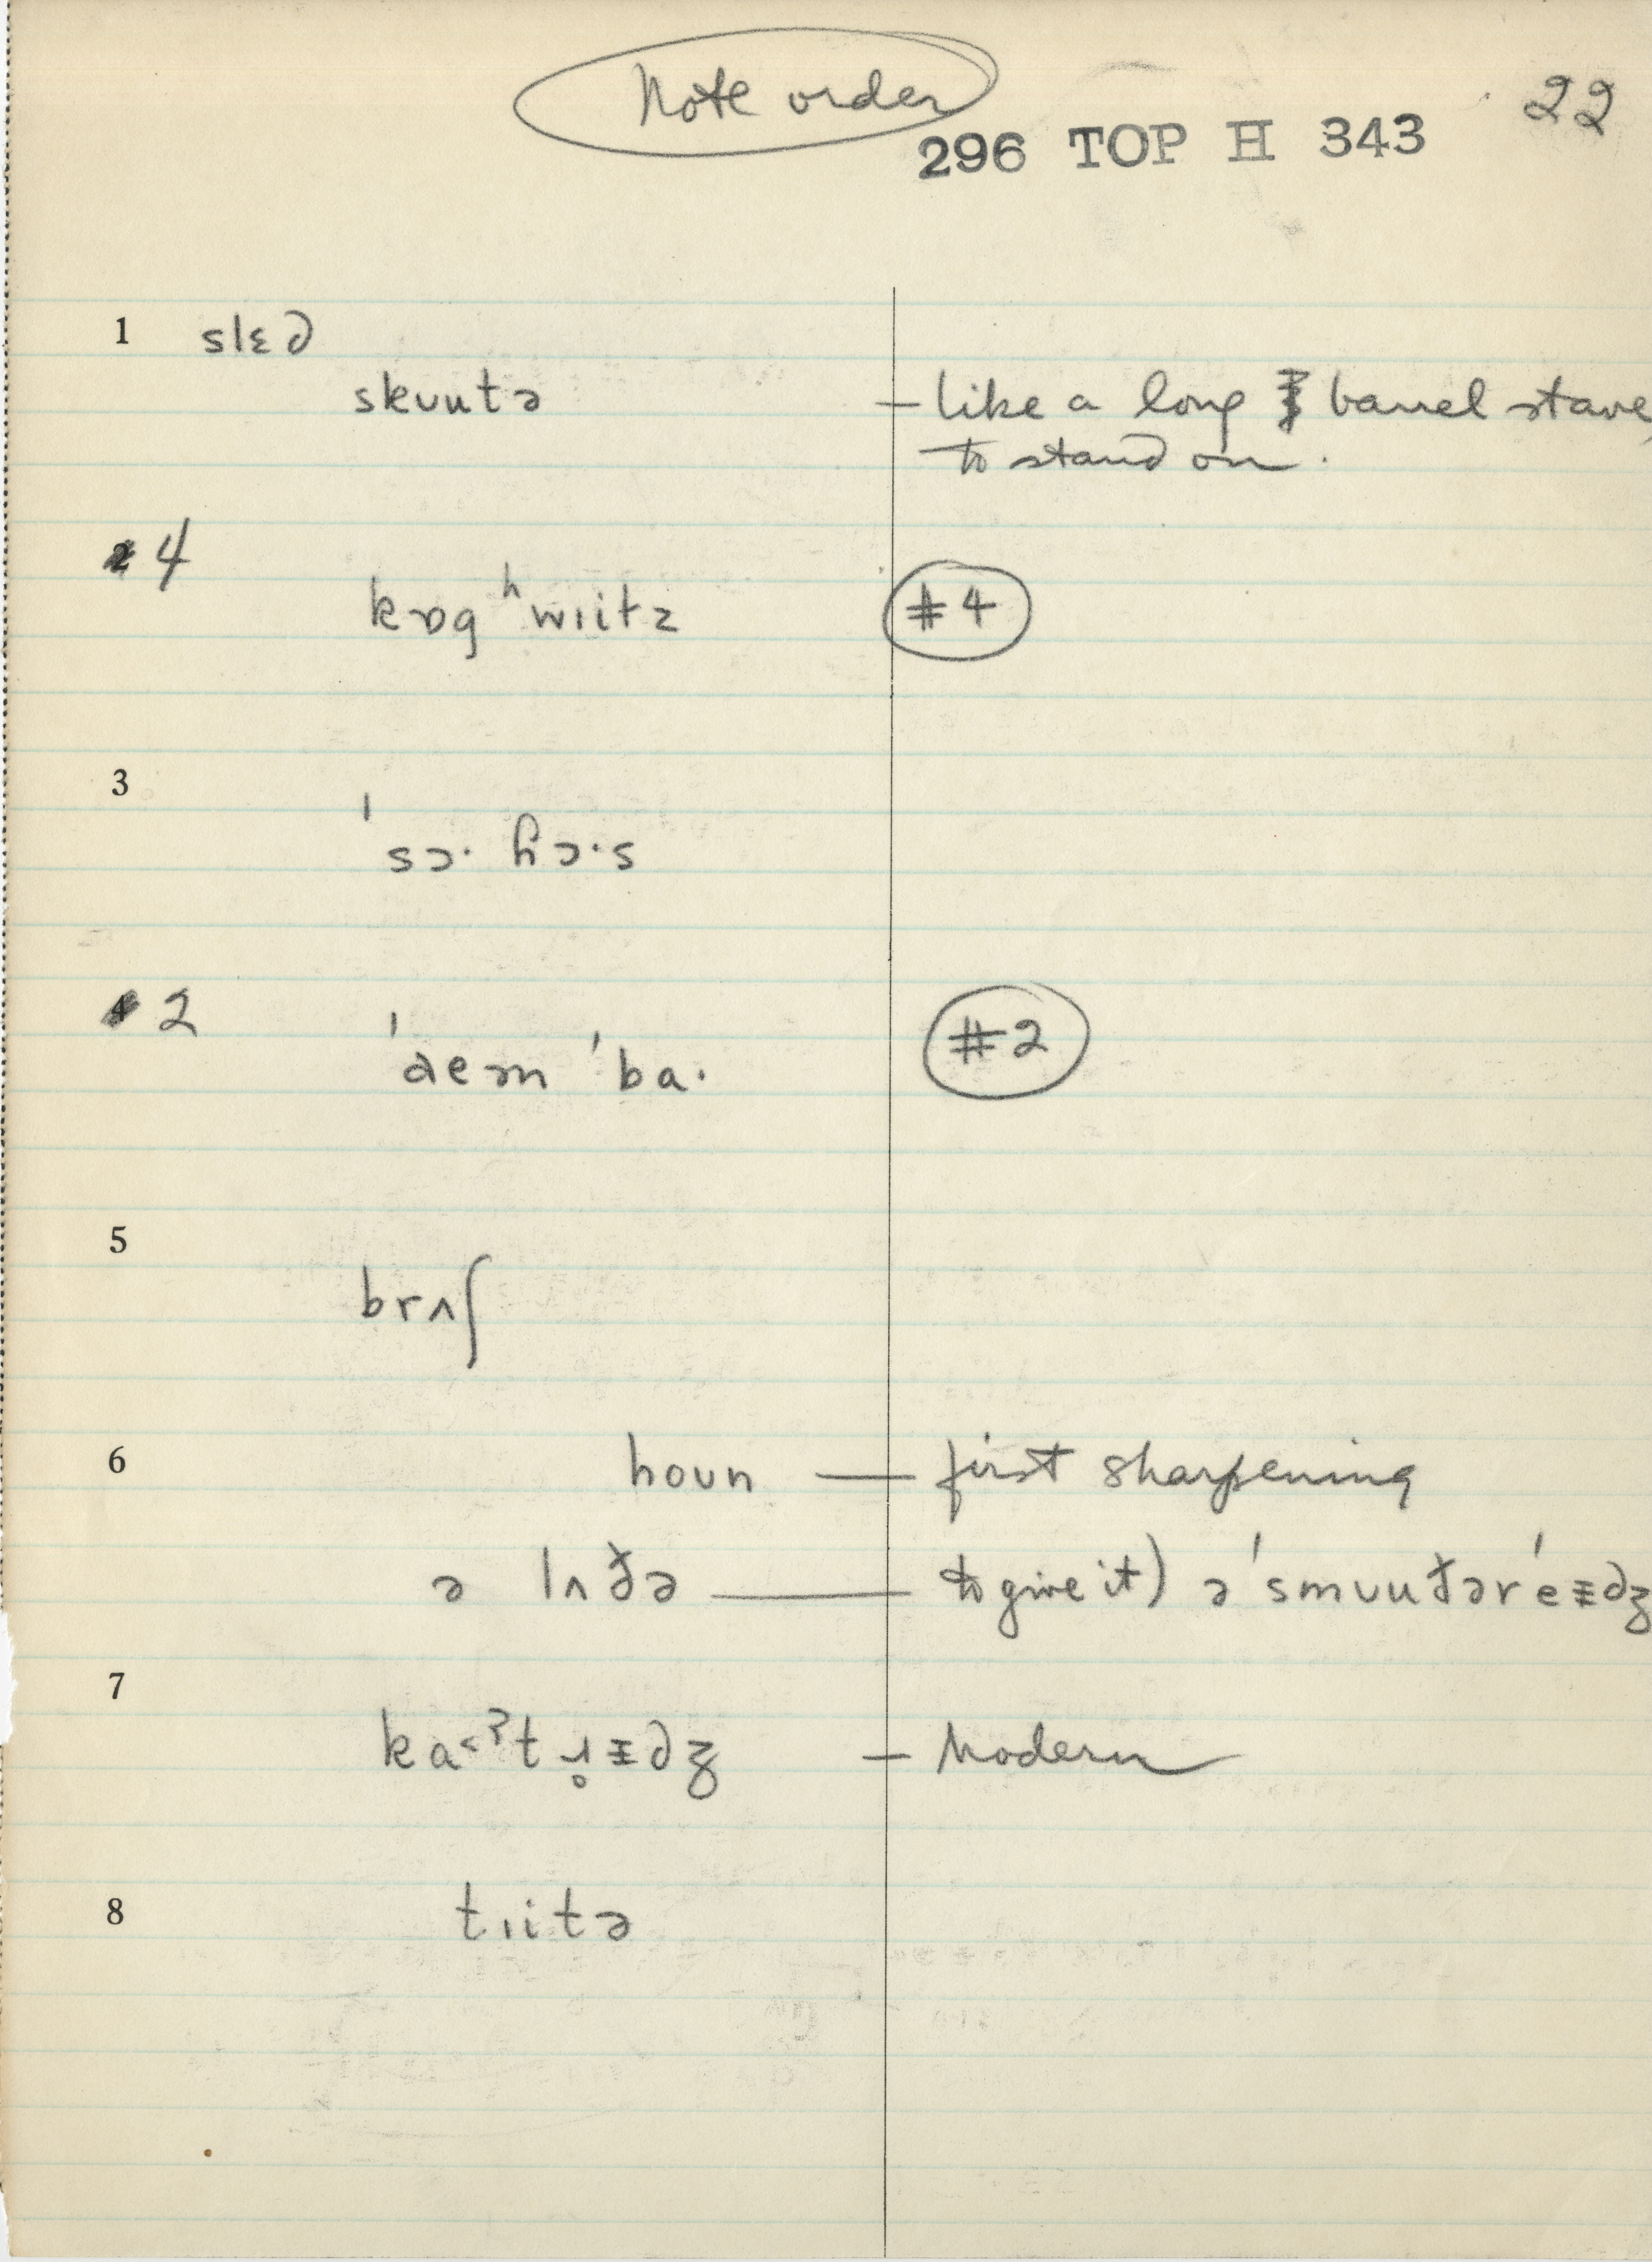 Note order
22
296 TOP H 343
1 slɛd
skuutə – like a long barrel stave,
to stand on.
4
kɒg ʰwɪitə #4
3
ˈsɔ· ɦɔ·s
2
ˈaem ˈba· #2
5
brʌʃ
6
houn — first sharpening
ə lʌðə — to give it) ə ˈsmuuðər
7
– Modern
8
tɪitə